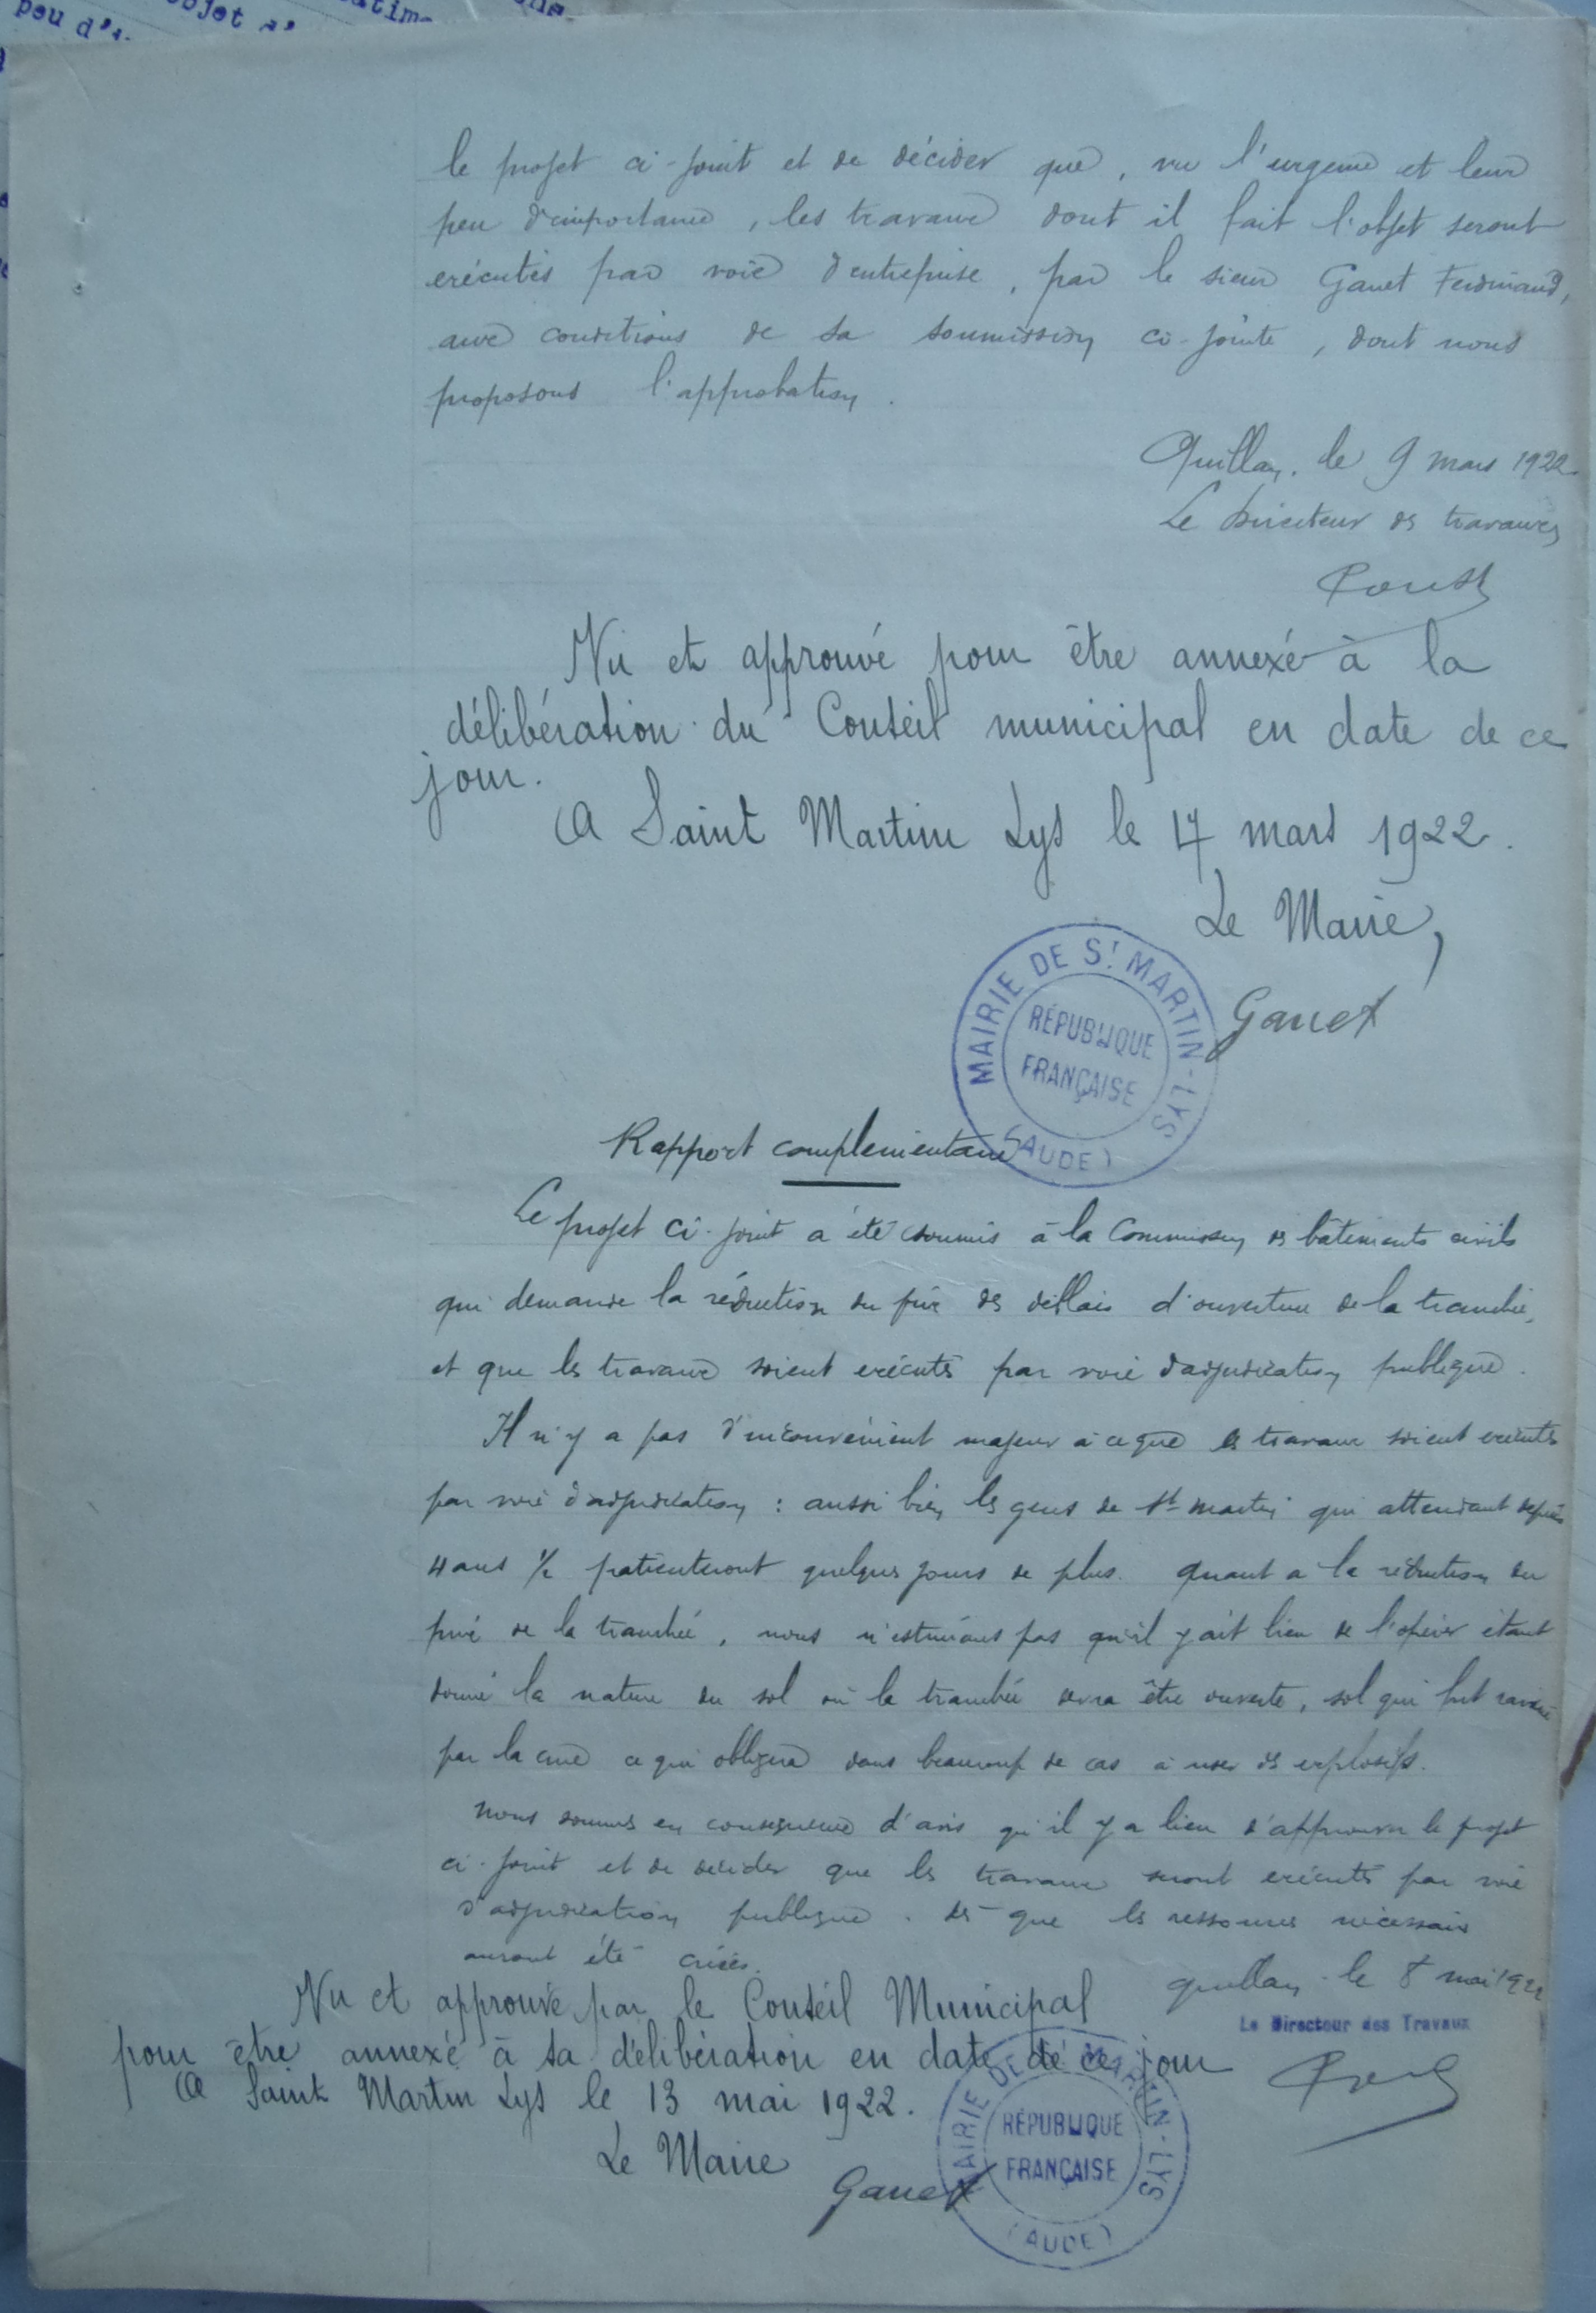 peu d'
objet
le projet ci-joint et de décider que, vu l'urgence et leur
peu d'importance, les travaux dont il fait l'objet seront
exécutés par voie d'entreprise, par le sieur Ganet Ferdinand,
aux conditions de sa soumission ci-jointe, dont nous
proposons l'approbation.
Quillan, le 9 mars 1922
Le Directeur des travaux
Vu et approuvé pour être annexé à la
délibération du Conseil municipal en date de ce
jour.
A Saint Martin Lys le 17 mars 1922.
Le Maire,
Ganet
MAIRIE DE St MARTIN-LYS
RÉPUBLIQUE
FRANÇAISE
(AUDE)
Rapport complémentaire
Le projet ci-joint a été soumis à la Commission des bâtiments civils
qui demande la réduction du prix des déblais d'ouverture de la tranchée,
et que les travaux soient exécutés par voie d'adjudication publique.
Il n'y a pas d'inconvénient majeur à ce que les travaux soient exécutés
par voie d'adjudication : aussi bien les gens de St-Martin qui attendent depuis
4 ans 1/2 patienteront quelques jours de plus. Quant a la réduction du
prix de la tranchée, nous n'estimons pas qu'il y ait lieu de l'opérer étant
donné la nature du sol où la tranchée devra être ouverte, sol qui fut raviné
par la crue ce qui obligera dans beaucoup de cas à user des explosifs.
Nous sommes en conséquence d'avis qu'il y a lieu d'approuver le projet
ci-joint et de décider que les travaux seront exécutés par voie
d'adjudication publique. dès que les ressources nécessaires
auront été créées.
Quillan le 8 mai 1922
Le Directeur des Travaux
Vu et approuvé par le Conseil Municipal
pour être annexé à sa délibération en date de ce jour
A Saint Martin Lys le 13 mai 1922.
Le Maire
Ganet
MAIRIE DE St MARTIN-LYS
RÉPUBLIQUE
FRANÇAISE
(AUDE)